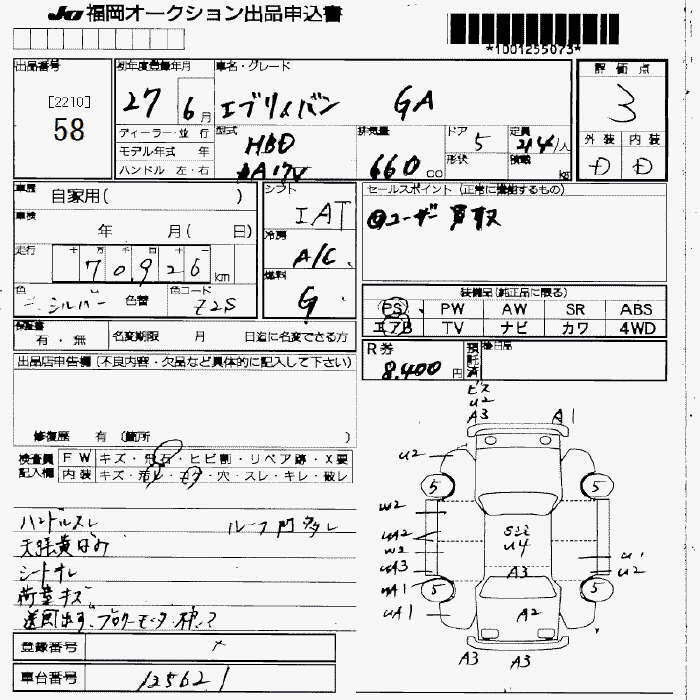 JU 福岡オークション出品申込書
*1001255073*
出品番号 [2210] 58
初年度登録年月 27 6月
車名・グレード エブリィバン GA
評価点 3
ディーラー・並行
モデル年式 年
ハンドル 左・右
型式 HBD DA17V
排気量 660 cc
ドア 5
形状
定員 2/4/人
積載 kg
外装 D 内装 D
車歴 自家用( )
車検 年 月( 日)
走行 十 万 千 百 十 一 70,926 km
色 シルバー 色替
色コード Z2S
シフト IAT
冷房 A/C
燃料 G
セールスポイント (正常に機能するもの)
@ユーザー買取
装備品(純正品に限る)
PS PW AW SR ABS
エアB TV ナビ カワ 4WD
検査書 有・無
名変期限 月 日迄に名変できる方
R券 8,400円
預託済
後日品
出品店申告欄(不良内容・欠品など具体的に記入して下さい)
修復歴 有 (箇所 )
検査員記入欄
FW キズ・飛石・ヒビ割・リペア跡・X要
内装 キズ・汚れ・コゲ・穴・スレ・キレ・破レ
ハンドルスレ
天張黄ばみ
シートオレ
荷室キズ
登録番号
車台番号 125621
ビス
U2
A3 A1
U2
5 5
W2
UA2
W2
UA3
UA1
UA1
U4
A3
A2
U1
U2
5 5
A3 A3